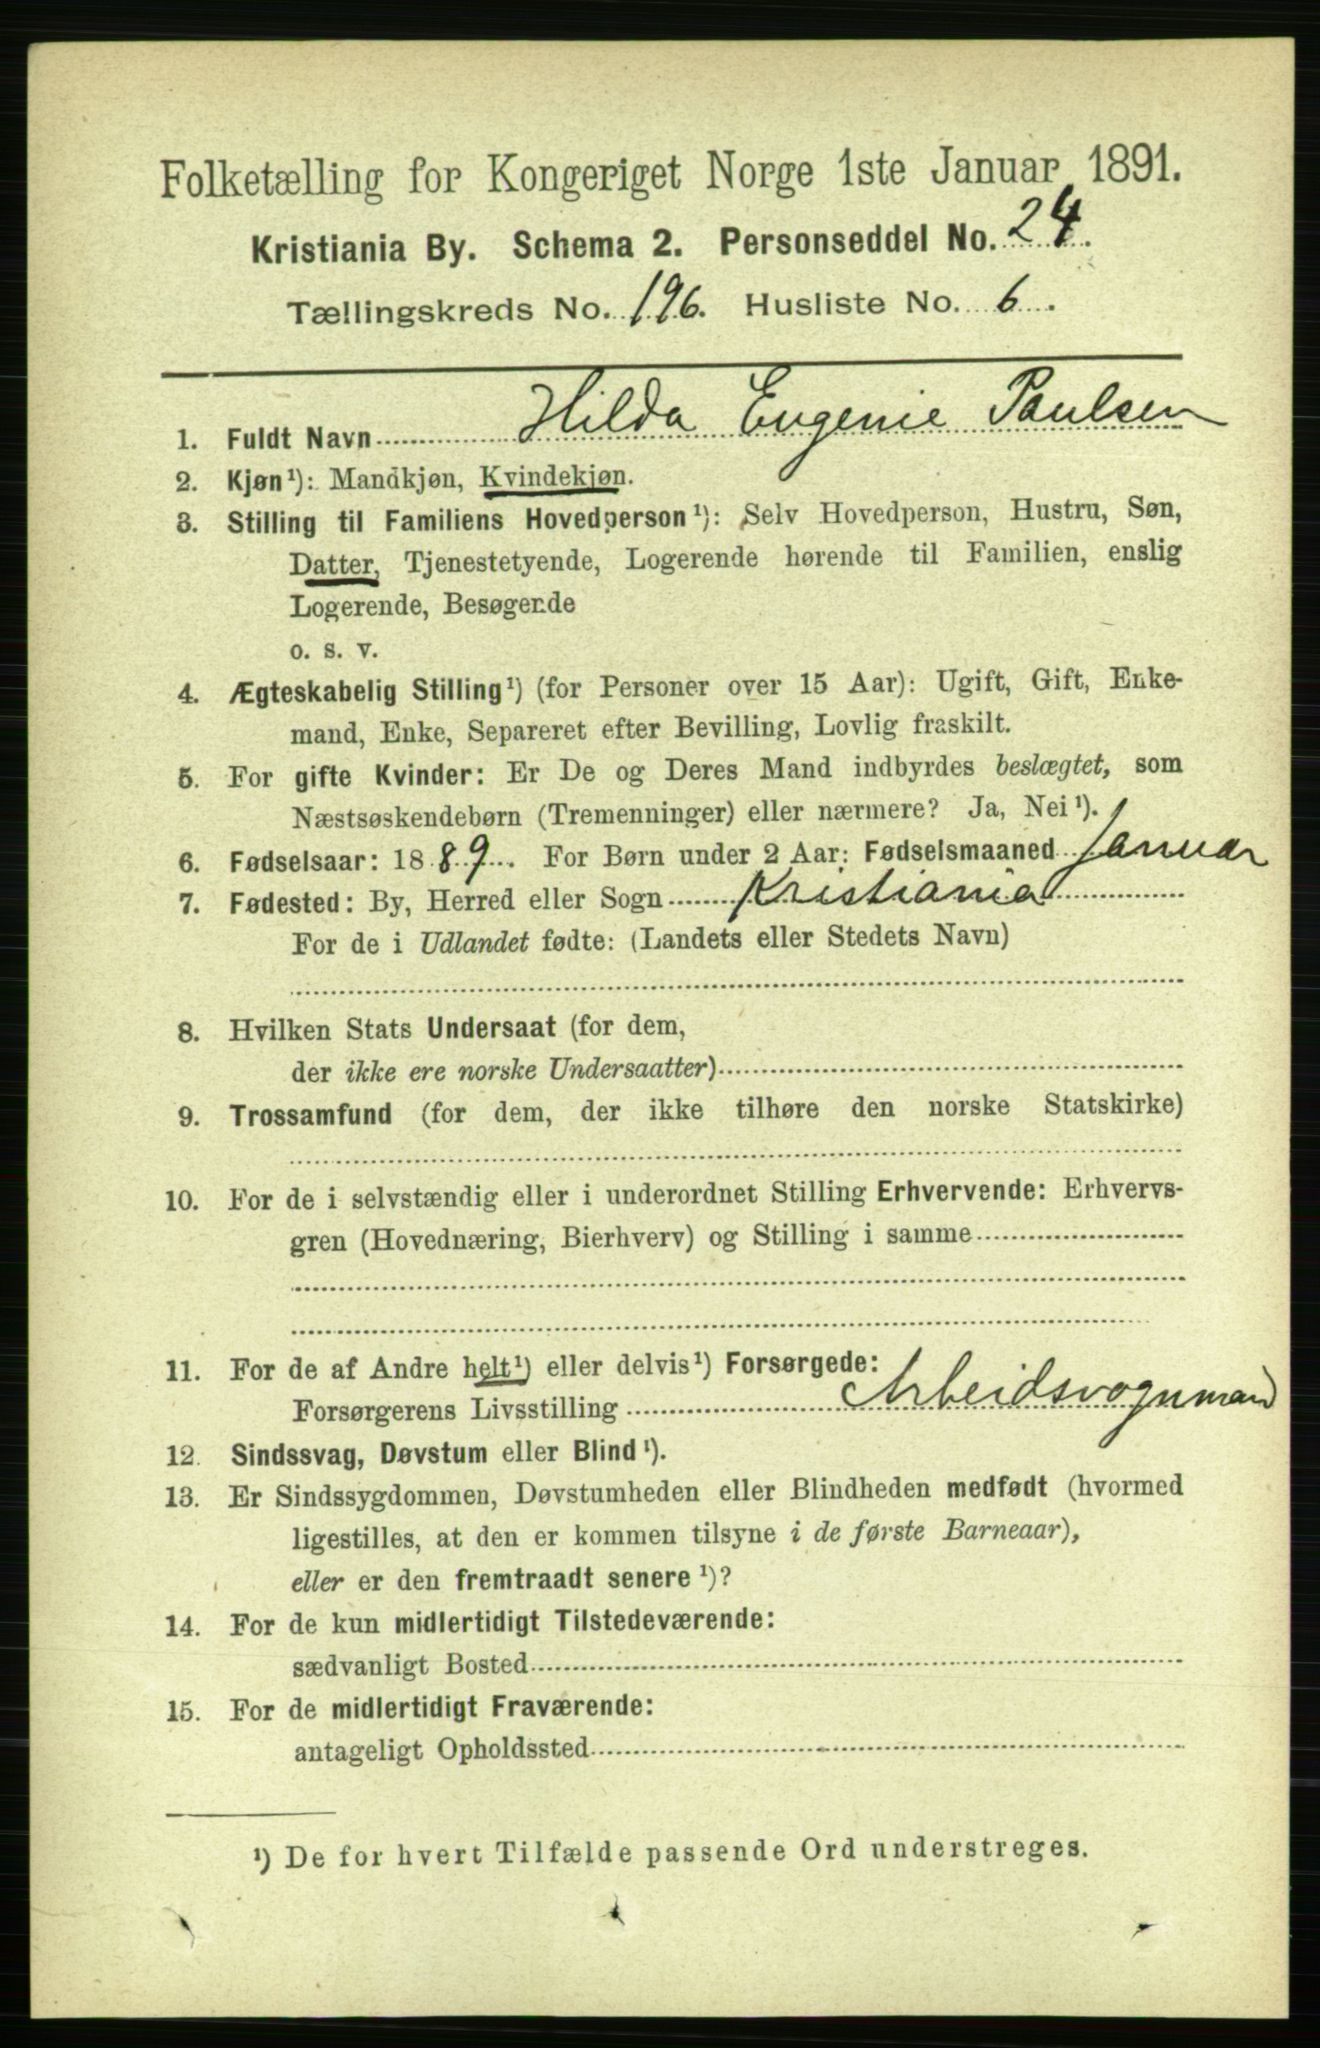 Folketælling for Kongeriget Norge 1ste Januar 1891.
Kristiania By. Schema 2. Personseddel No. 24.
Tællingskreds No. 196. Husliste No. 6.
1. Fuldt Navn Hilda Eugenie Paulsen
2. Kjøn¹): Mandkjøn, Kvindekjøn.
3. Stilling til Familiens Hovedperson¹): Selv Hovedperson, Hustru, Søn,
Datter, Tjenestetyende, Logerende hørende til Familien, enslig
Logerende, Besøgende
o. s. v.
4. Ægteskabelig Stilling¹) (for Personer over 15 Aar): Ugift, Gift, Enke-
mand, Enke, Separeret efter Bevilling, Lovlig fraskilt.
5. For gifte Kvinder: Er De og Deres Mand indbyrdes beslægtet, som
Næstsøskendebørn (Tremenninger) eller nærmere? Ja, Nei¹).
6. Fødselsaar: 1889. For Børn under 2 Aar: Fødselsmaaned Januar
7. Fødested: By, Herred eller Sogn Kristiania
For de i Udlandet fødte: (Landets eller Stedets Navn)
8. Hvilken Stats Undersaat (for dem,
der ikke ere norske Undersaatter)
9. Trossamfund (for dem, der ikke tilhøre den norske Statskirke)
10. For de i selvstændig eller i underordnet Stilling Erhvervende: Erhvervs-
gren (Hovednæring, Bierhverv) og Stilling i samme
11. For de af Andre helt¹) eller delvis¹) Forsørgede:
Forsørgerens Livsstilling Arbeidsvognmand
12. Sindssvag, Døvstum eller Blind¹).
13. Er Sindssygdommen, Døvstumheden eller Blindheden medfødt (hvormed
ligestilles, at den er kommen tilsyne i de første Barneaar),
eller er den fremtraadt senere¹)?
14. For de kun midlertidigt Tilstedeværende:
sædvanligt Bosted
15. For de midlertidigt Fraværende:
antageligt Opholdssted
¹) De for hvert Tilfælde passende Ord understreges.